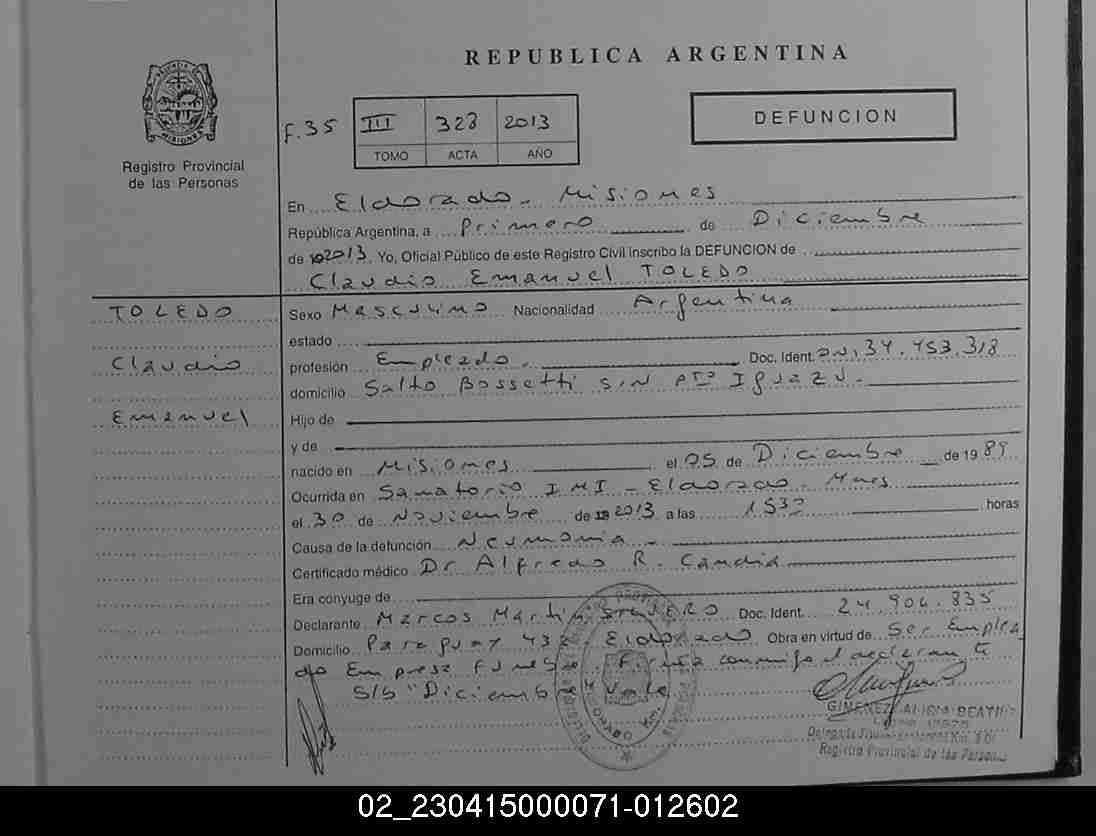 REPUBLICA ARGENTINA
DEFUNCION
F.35 III 323 2013
TOMO ACTA AÑO
Registro Provincial
de las Personas
En Eldorado - Misiones
República Argentina, a Primero de Diciembre
de 192013. Yo, Oficial Público de este Registro Civil inscribo la DEFUNCION de
Claudio Emanuel TOLEDO
TOLEDO
Claudio
Emanuel
Sexo Masculino Nacionalidad Argentina
estado
profesión Empleado. Doc. Ident. DNI 34.453.318
domicilio Salto Bossetti S/N Pto Iguazú.
Hijo de
y de
nacido en Misiones el 05 de Diciembre de 1989
Ocurrida en Sanatorio IMI - Eldorado - Mnes
el 30 de Noviembre de 192013 a las 1530 horas
Causa de la defunción Neumonia
Certificado médico Dr Alfredo R. Candia
Era conyuge de
Declarante Marcos Martin Doc. Ident. 24.904.835
Domicilio Paraguay 432 Eldorado Obra en virtud de Ser Emplea
do Empresa Funebre. Firma conmigo el declarante
S/b "Diciembre" Vale
GIMENEZ ALICIA BEATRIZ
Registro Provincial de las Personas
02_230415000071-012602